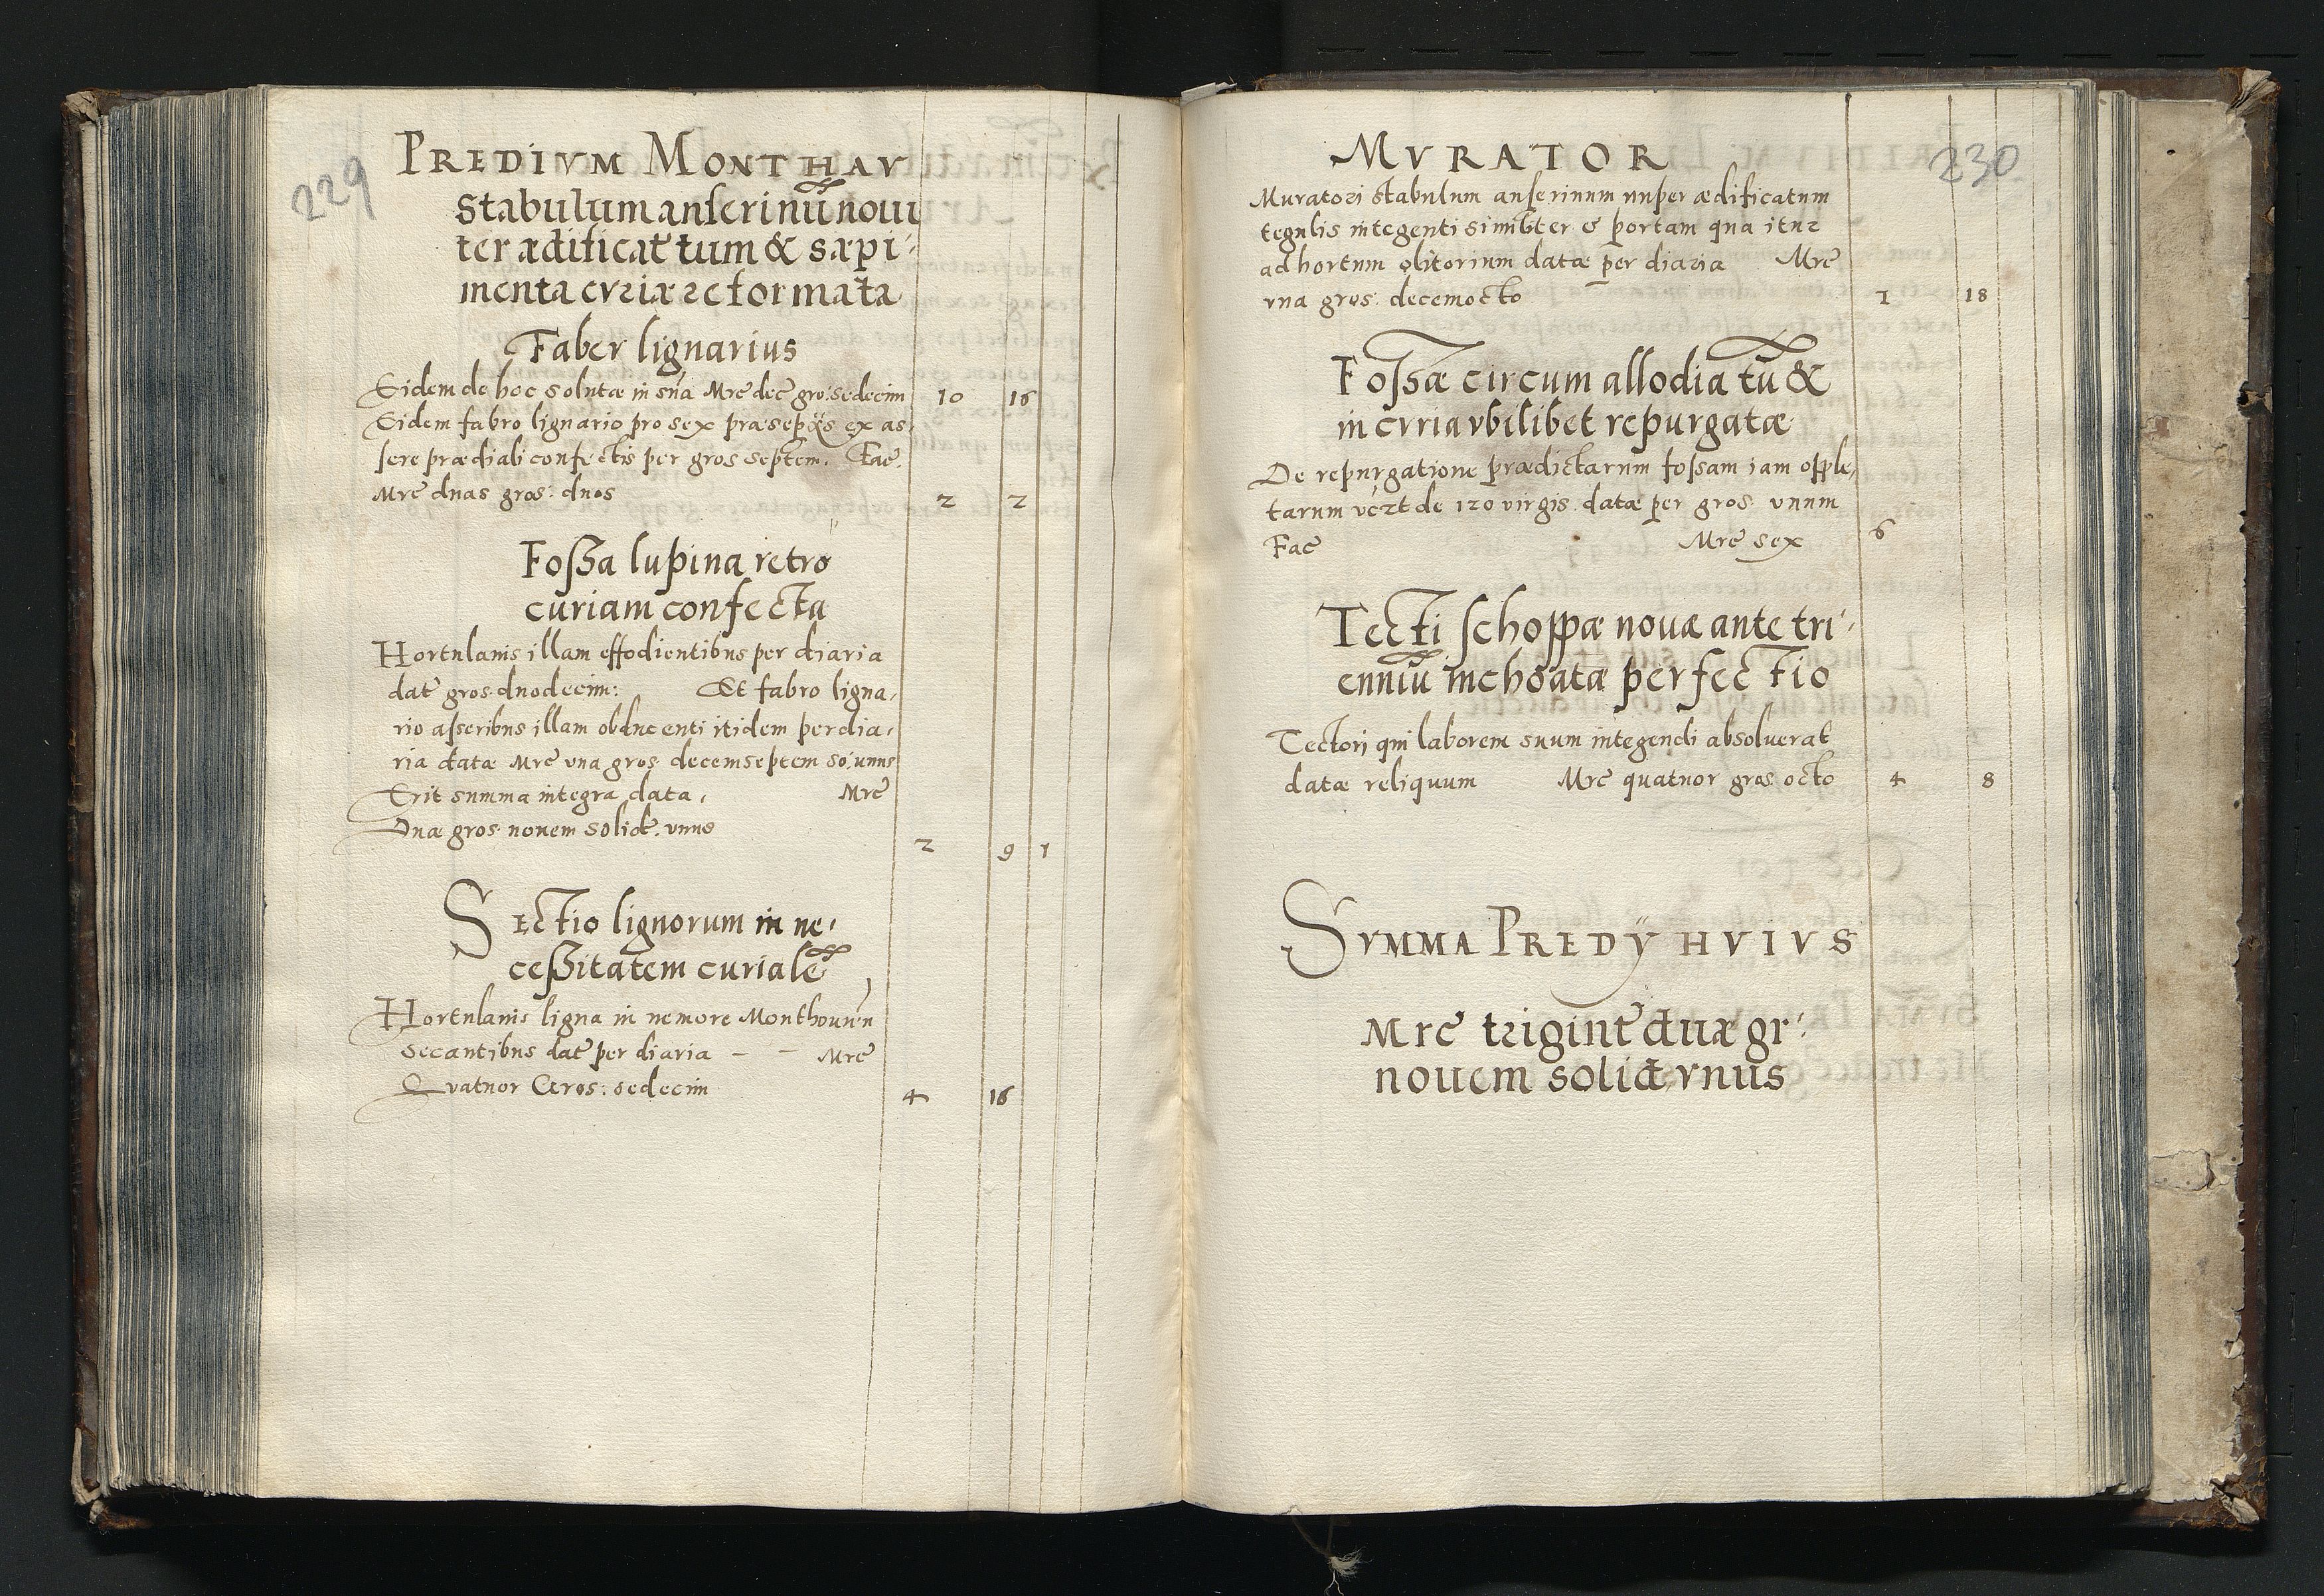 229
PREDIVM MONTHAV
Stabulum anserinū noui
ter ædificattum & sæpi-
menta cvriæ reformata
Faber lignarius
Eidem de hoc solutæ in sūa Mrc dec gro: sedecim 10 16
Eidem fabro lignario pro sex præsepijs ex as-
sere prædiali confectis per gros septem. Fac.
Mrc duas gros: duos 2 2
Foßa lupina retro
curiam confecta
Hortulanis illam effodientibus per diaria
dat gros duodecim: Et fabro ligna-
rio asseribus illam obducenti itidem per dia-
ria datæ Mrc vna gros decemseptem so: unus
Erit summa integra data, Mrc
Duæ gros nouem solid. vnus 2 9 1
SECTio lignorum in ne-
ceßitatem curialē
Hortulanis ligna in nemore Monthouuen
secantibus dat per diaria – – Mrc
Qvatuor Gros: sedecim 4 16
230
MVRATOR
Muratori stabulum anserinum nuper ædificatum
tegulis integenti similiter & portam qua itur
ad hortum olitorium datæ per diaria Mrc
vna gros: decemocto 1 18
Foßæ circum allodia tū &
in cvria vbilibet repurgatæ
De repurgatione prædictarum foßam iam opple-
tarum vczt de 120 virgis datæ per gros vnum
Fac Mrc sex 6
Tecti schoppæ nouæ ante tri-
enniū inchoatæ perfectio
Tectori qui laborem suum integendi absoluerat
datæ reliquum Mrc quatuor gros octo 4 8
SVMMA PREDŸ HVIVS
Mrc trigint duæ gr:
nouem solid, vnus